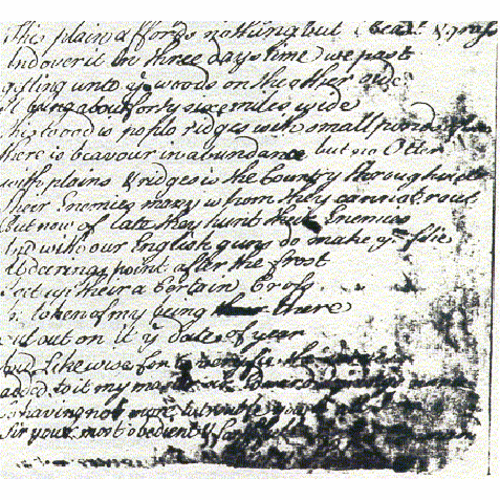 This plain affords nothing but Beast & grass
And over it in three days time we past
getting unto ye woods on the other side
It being about forty sixe miles wide
This wood is poplo ridges with small ponds of
there is beavour in abundance but no Otter
with plains & ridges is the Country throughout
Their Enemies many whom they cannot rout
But now of late they hunt their Enemies
And with our English guns do make ym flie
At deerings point after the frost
I set up their a Certain Cross
in token of my being there
Cut out on it ye date of year
And Likewise for to
added to it my master
So having not more to
Sir your most obedient &